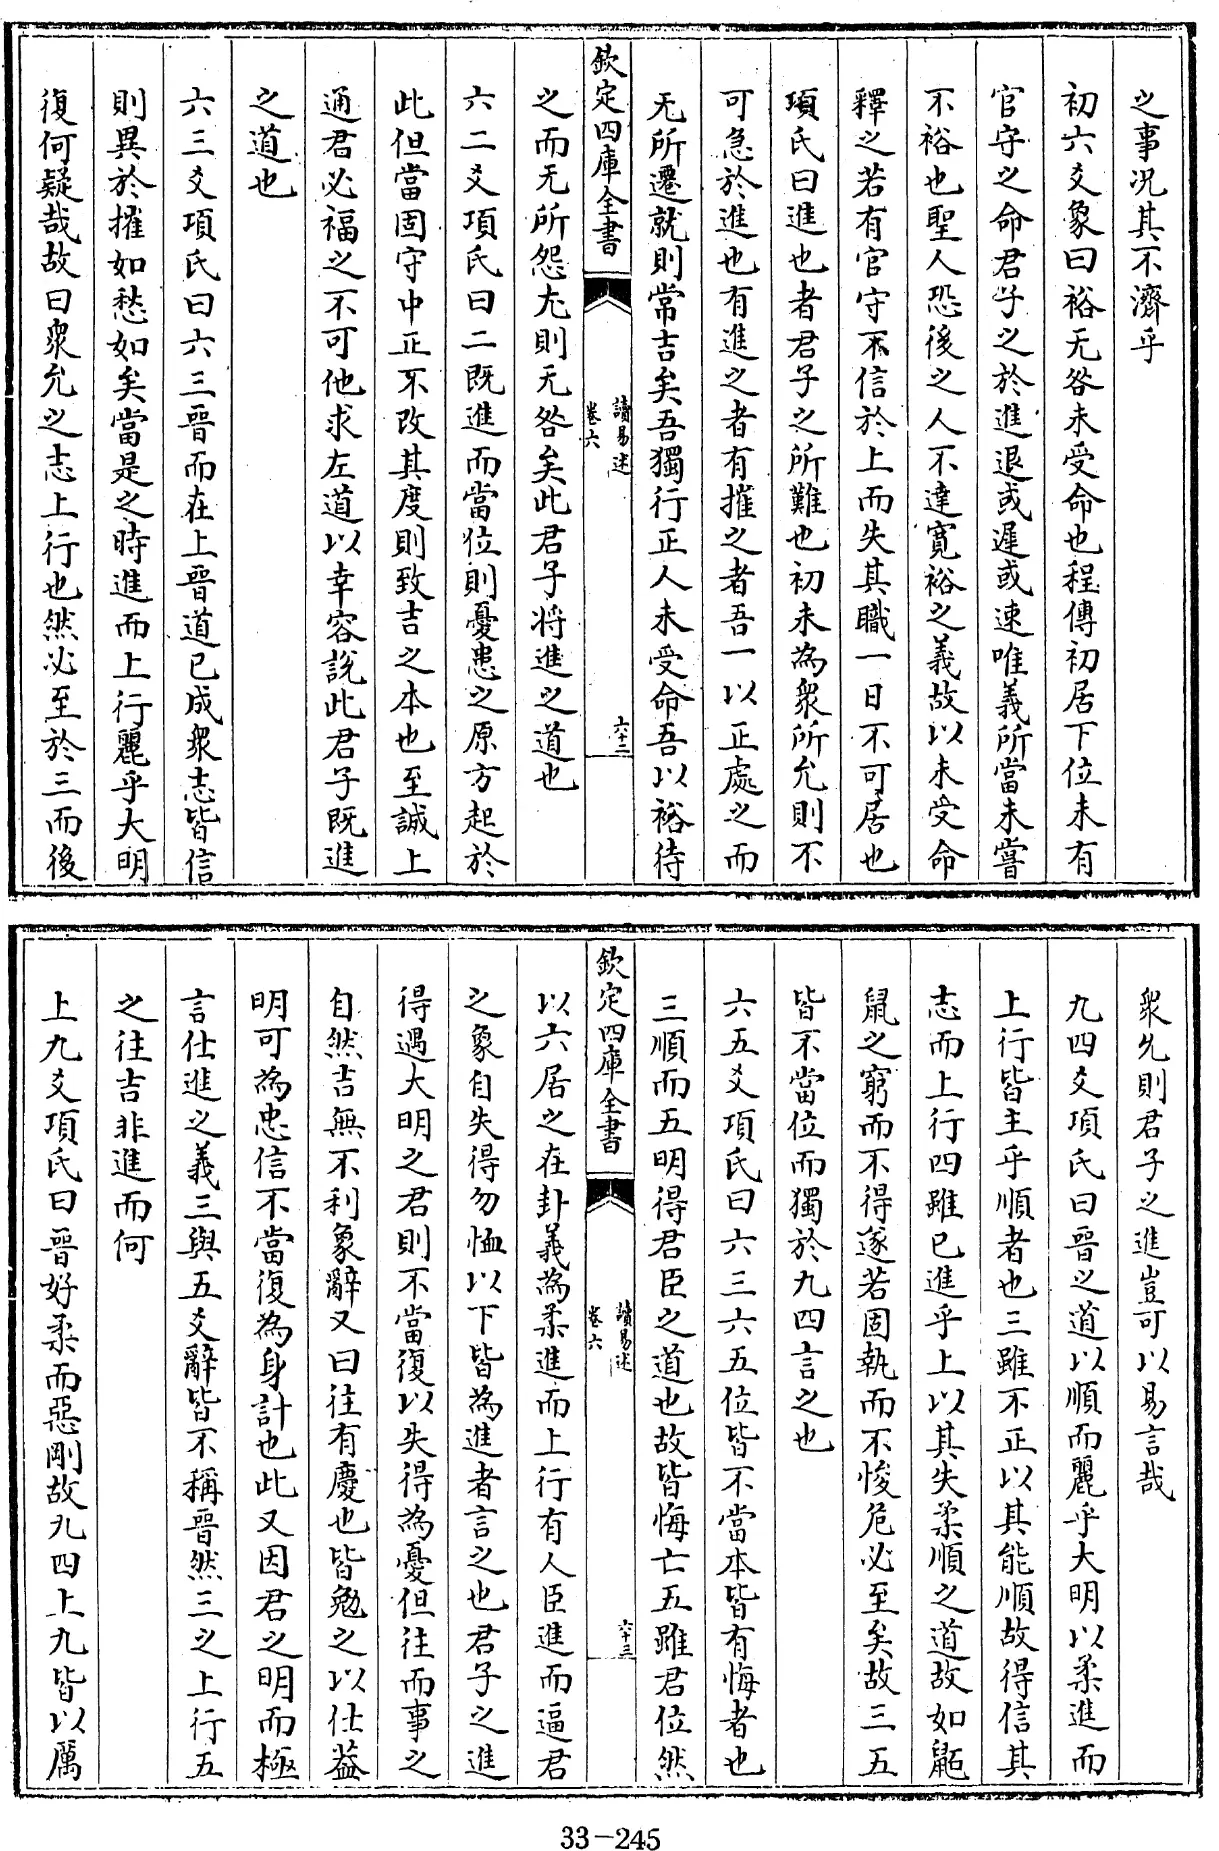 之事况其不濟乎
初六爻象曰裕无咎未受命也程傳初居下位未有
官守之命君子之於進退或遲或速唯義所當未嘗
不裕也聖人恐後之人不達寛裕之義故以未受命
釋之若有官守不信於上而失其職一日不可居也
項氏曰進也者君子之所難也初未為衆所允則不
可急於進也有進之者有摧之者吾一以正處之而
无所遷就則常吉矣吾獨行正人未受命吾以裕待
欽定四庫全書
讀易述
卷六
六十二
之而无所怨尤則无咎矣此君子將進之道也
六二爻項氏曰二既進而當位則憂患之原方起於
此但當固守中正不改其度則致吉之本也至誠上
通君必福之不可他求左道以幸容説此君子既進
之道也
六三爻項氏曰六三晋而在上晋道已成衆志皆信
則異於摧如愁如矣當是之時進而上行麗乎大明
復何疑哉故曰衆允之志上行也然必至於三而後
衆允則君子之進豈可以易言哉
九四爻項氏曰晋之道以順而麗乎大明以柔進而
上行皆主乎順者也三雖不正以其能順故得信其
志而上行四雖已進乎上以其失柔順之道故如鼫
鼠之窮而不得遂若固執而不悛危必至矣故三五
皆不當位而獨於九四言之也
六五爻項氏曰六三六五位皆不當本皆有悔者也
三順而五明得君臣之道也故皆悔亡五雖君位然
欽定四庫全書
讀易述
卷六
六十三
以六居之在卦義為柔進而上行有人臣進而逼君
之象自失得勿恤以下皆為進者言之也君子之進
得遇大明之君則不當復以失得為憂但往而事之
自然吉無不利象辭又曰往有慶也皆勉之以仕益
明可為忠信不當復為身計也此又因君之明而極
言仕進之義三與五爻辭皆不稱晋然三之上行五
之往吉非進而何
上九爻項氏曰晋好柔而惡剛故九四上九皆以厲
33-245